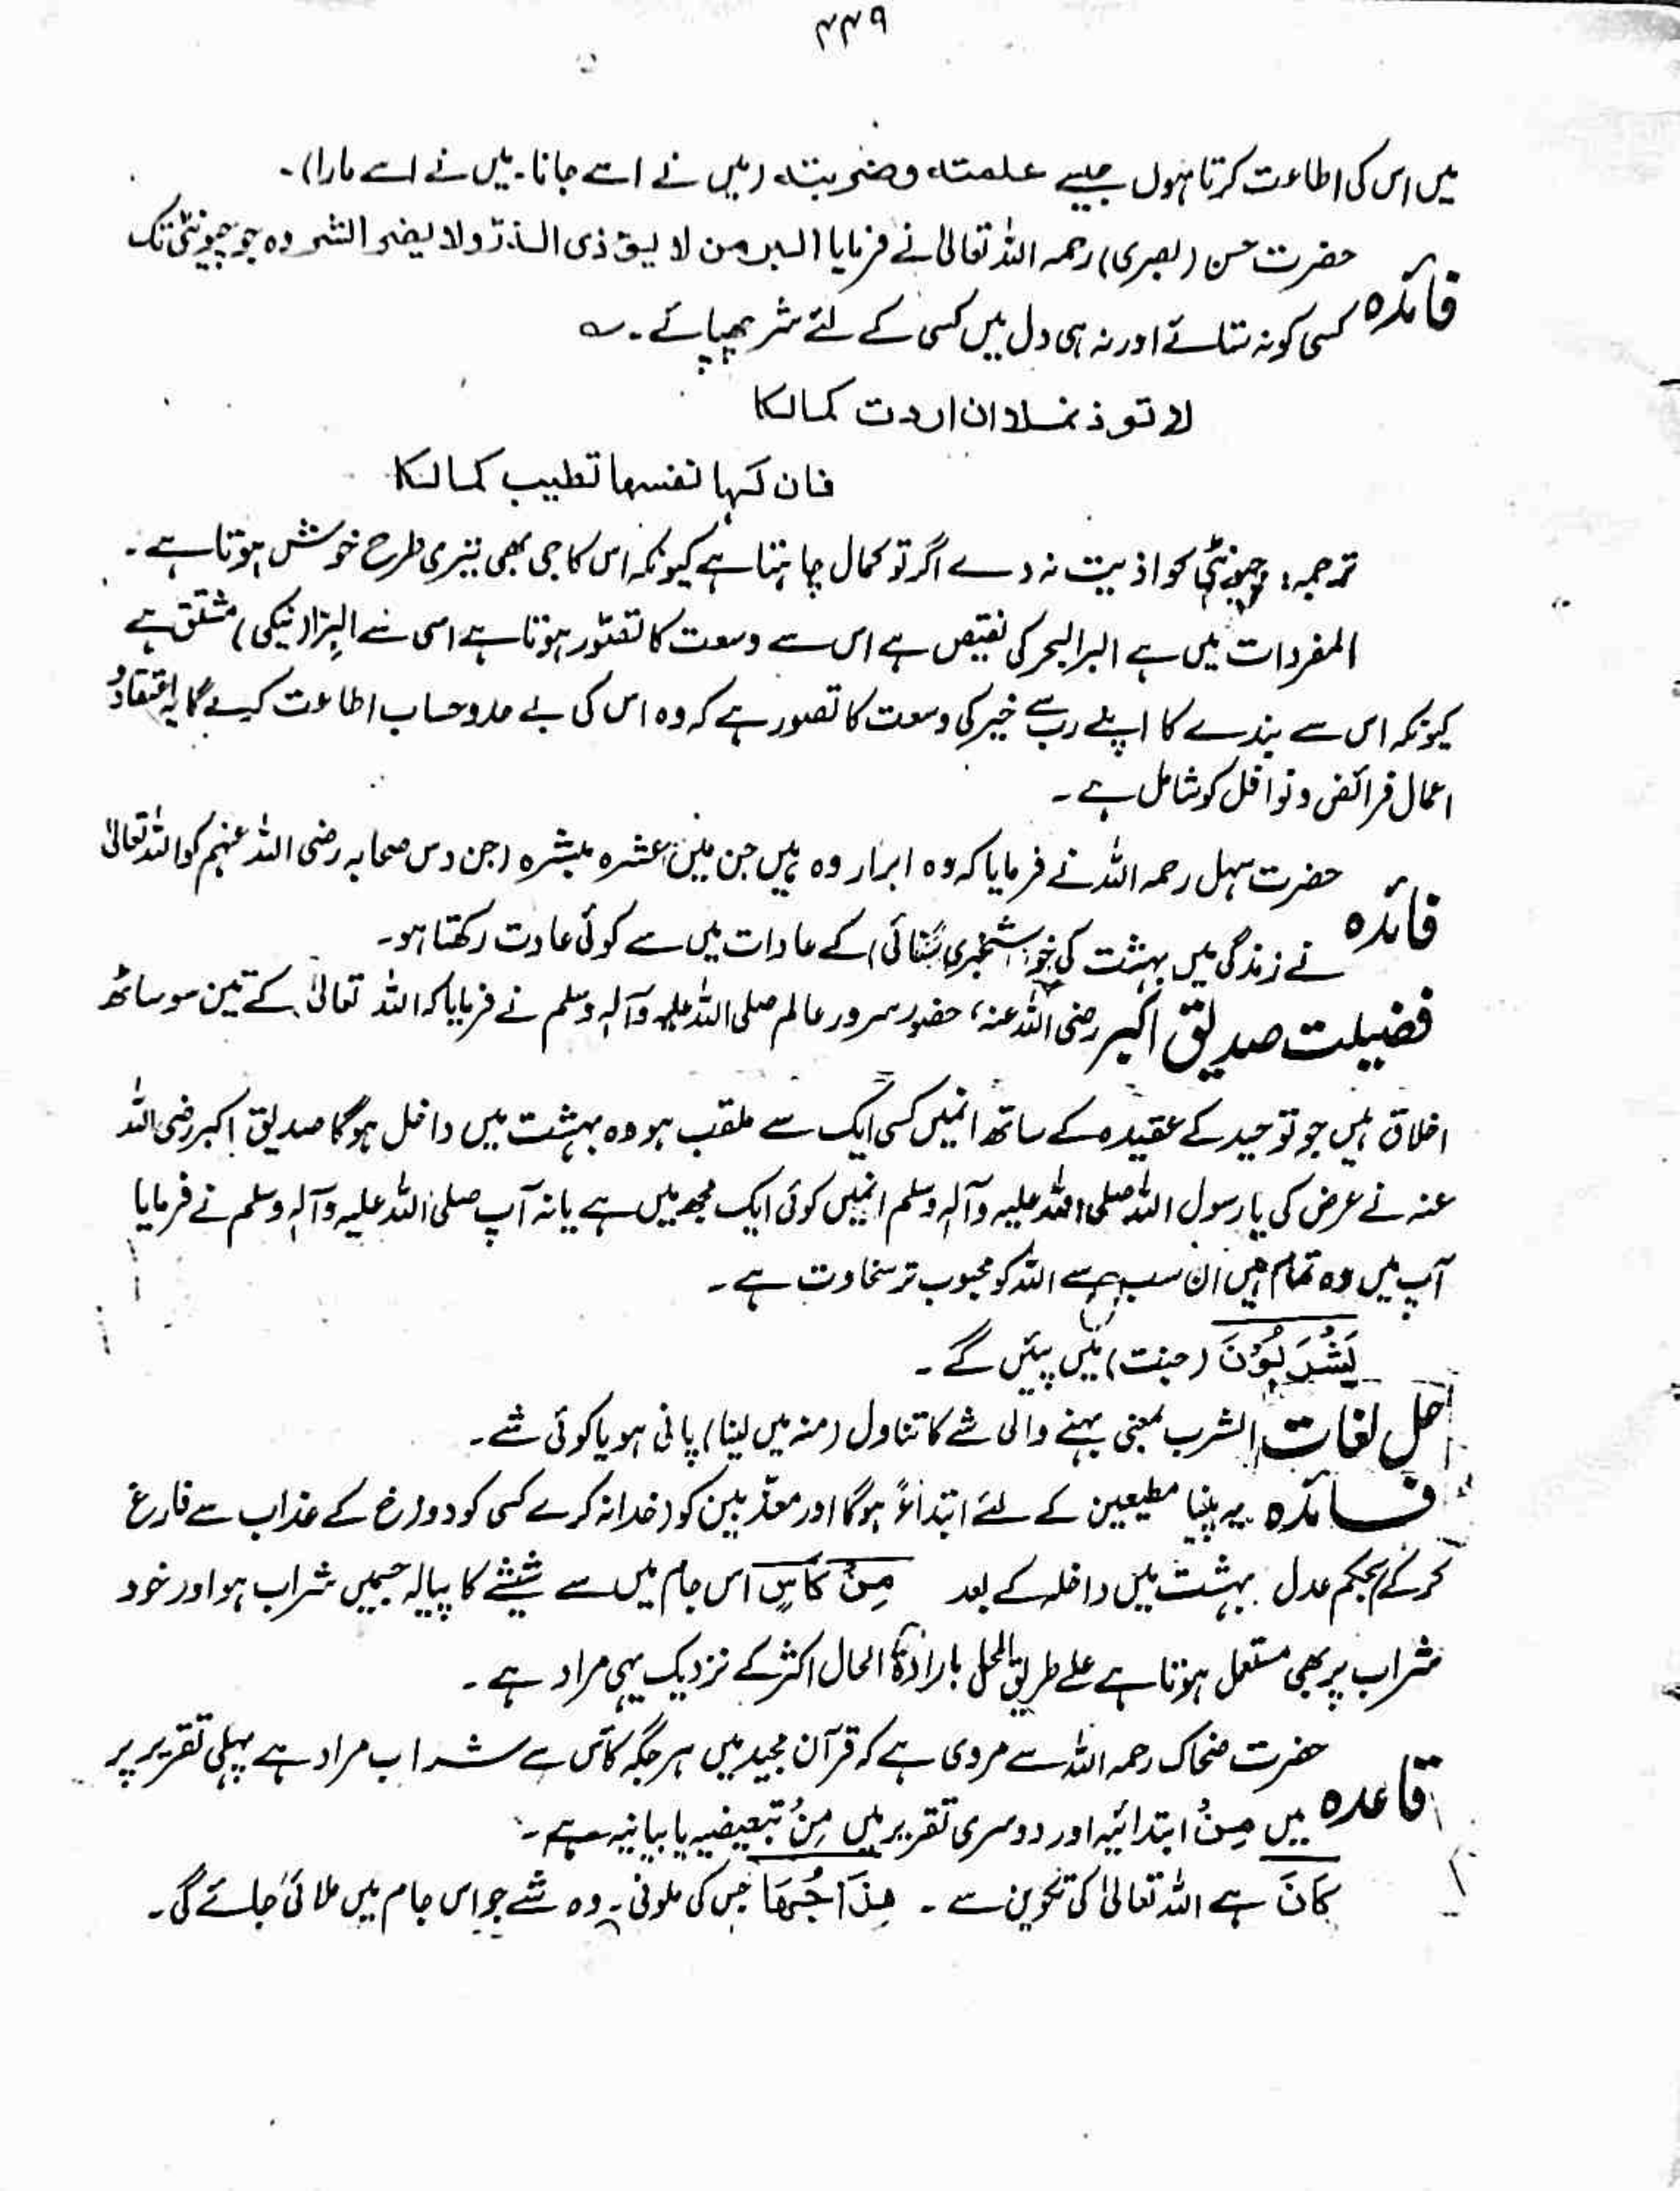 ۴۴۹
میں اس کی اطاعت کرتا ہوں جیسے علمتہ وضربتہ (میں نے اسے جانا۔ میں نے اسے مارا)۔
حضرت حسن (بصری) رحمہ اللہ تعالیٰ نے فرمایا البر من لا یؤذی الذر ولا یضمر الشر وہ جو چیونٹی تک
فائدہ کسی کو نہ ستائے اور نہ ہی دل میں کسی کے لئے شر چھپائے۔ ؎
لا توذ نملا ان اردت کمالکا
فان لہا نفسہا تطیب کمالکا
ترجمہ: چیونٹی کو اذیت نہ دے اگر تو کمال چاہتا ہے کیونکہ اس کا جی بھی تیری طرح خوش ہوتا ہے۔
المفردات میں ہے البر البحر کی نقیض ہے اس سے وسعت کا تصور ہوتا ہے اسی سے البِرّ (نیکی) مشتق ہے
کیونکہ اس سے بندے کا اپنے رب سے خیر کی وسعت کا تصور ہے کہ وہ اس کی بے حد وحساب اطاعت کرے گا یہ اعتقاد و
اعمال فرائض و نوافل کو شامل ہے۔
حضرت سہل رحمہ اللہ نے فرمایا کہ وہ ابرار وہ ہیں جن میں عشرہ مبشرہ (جن دس صحابہ رضی اللہ عنہم کو اللہ تعالیٰ
فائدہ نے زندگی میں بہشت کی خوشخبری سنائی) کے عادات میں سے کوئی عادت رکھتا ہو۔
فضیلت صدیق اکبر رضی اللہ عنہ، حضور سرور عالم صلی اللہ علیہ وآلہ وسلم نے فرمایا کہ اللہ تعالیٰ کے تین سو ساٹھ
اخلاق ہیں جو توحید کے عقیدہ کے ساتھ انہیں کسی ایک سے ملقب ہو وہ بہشت میں داخل ہوگا صدیق اکبر رضی اللہ
عنہ نے عرض کی یا رسول اللہ صلی اللہ علیہ وآلہ وسلم انہیں کوئی ایک مجھ میں ہے یا نہ آپ صلی اللہ علیہ وآلہ وسلم نے فرمایا
آپ میں وہ تمام ہیں ان سب سے اللہ کو محبوب تر سخاوت ہے۔
یَشْرَبُوْنَ (جنت) میں پئیں گے۔
حل لغات الشرب بمعنی بہنے والی شے کا تناول (منہ میں لینا) پانی ہو یا کوئی شے۔
فائدہ یہ پینا مطیعین کے لئے ابتداءً ہوگا اور معذبین کو (خدا نہ کرے کسی کو دوزخ کے عذاب سے فارغ
کر کے بحکم عدل بہشت میں داخلہ کے بعد مِنْ کَاْسٍ اس جام میں سے شیشے کا پیالہ جسمیں شراب ہو اور خود
شراب پر بھی مستعمل ہوتا ہے علے طریق المحل بارادۃ الحال اکثر کے نزدیک یہی مراد ہے۔
حضرت ضحاک رحمہ اللہ سے مروی ہے کہ قرآن مجید میں ہر جگہ کأس سے شراب مراد ہے پہلی تقریر پر
قاعدہ میں مِنْ ابتدائیہ اور دوسری تقریر میں مِنْ تبعیضیہ یا بیانیہ ہے۔
کَانَ ہے اللہ تعالیٰ کی تکوین سے۔ مِزَاجُہَا جس کی ملونی۔ وہ شے جو اس جام میں ملائی جائے گی۔